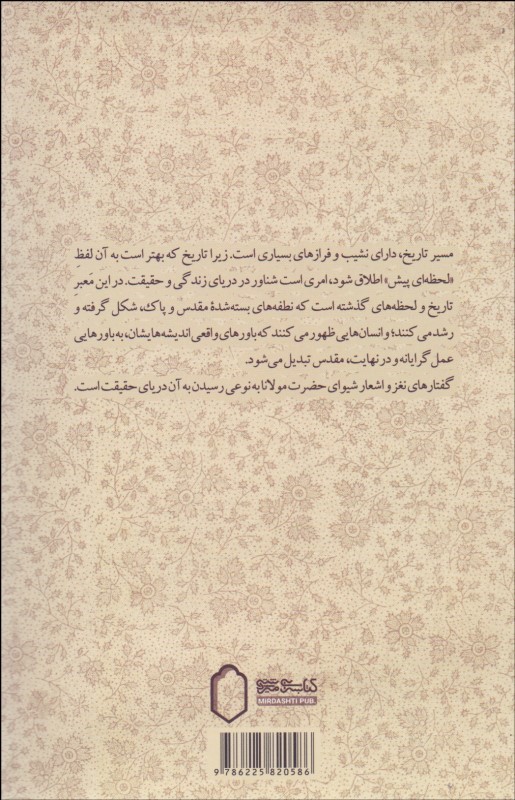 مسیر تاریخ، دارای نشیب و فرازهای بسیاری است. زیرا تاریخ که بهتر است به آن لفظِ
«لحظه‌ای پیش» اطلاق شود، امری است شناور در دریای زندگی و حقیقت. در این مَعبرِ
تاریخ و لحظه‌های گذشته است که نطفه‌های بسته‌شدهٔ مقدس و پاک، شکل گرفته و
رشد می‌کنند؛ و انسان‌هایی ظهور می‌کنند که باورهای واقعی اندیشه‌هایشان، به باورهایی
عمل‌گرایانه و در نهایت، مقدس تبدیل می‌شود.
گفتارهای نغز و اشعار شیوای حضرت مولانا به نوعی رسیدن به آن دریای حقیقت است.
کتابسرای میردشتی
MIRDASHTI PUB.
9 786225 820586